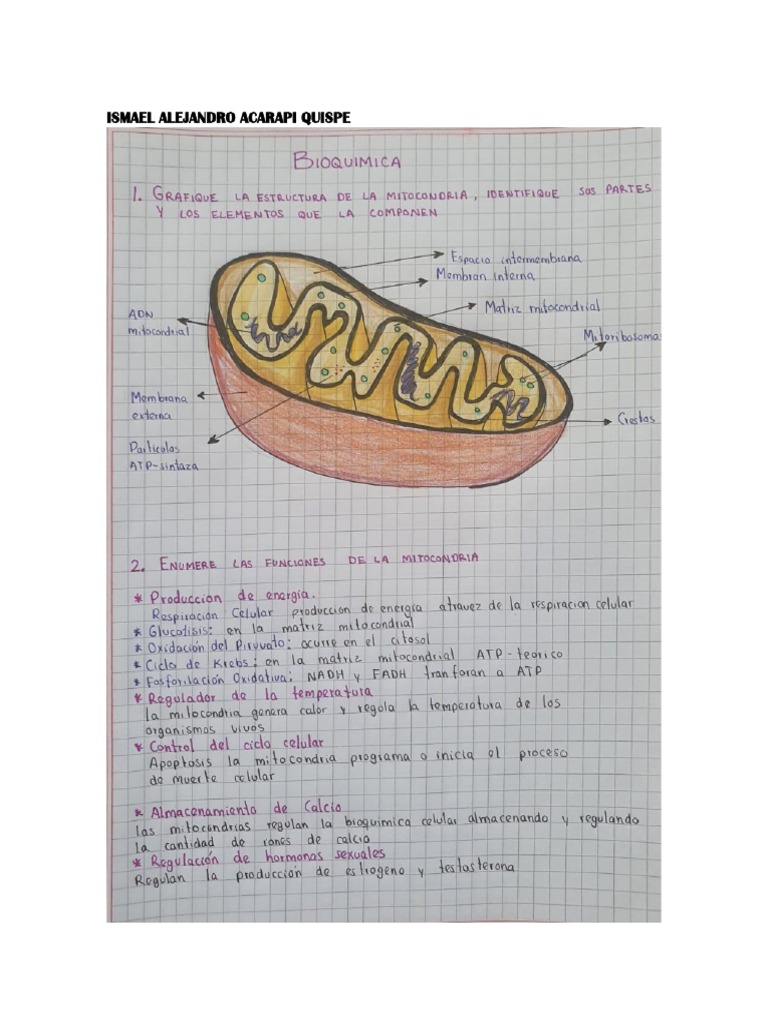 ISMAEL ALEJANDRO ACARAPI QUISPE
BIOQUIMICA
1. GRAFIQUE LA ESTRUCTURA DE LA MITOCONDRIA, IDENTIFIQUE SUS PARTES
Y LOS ELEMENTOS QUE LA COMPONEN
Espacio intermembrana
Membran interna
Matriz mitocondrial
ADN
mitocondrial
Mitoribosoma
Membrana
externa
Crestas
Particulas
ATP-sintaza
2. ENUMERE LAS FUNCIONES DE LA MITOCONDRIA
* Produccion de energia.
Respiración Celular produccion de energia atravez de la respiracion celular
* Glucolisis: en la matriz mitocondrial
* Oxidación del Piruvato: ocurre en el citosol
* Ciclo de Krebs: en la matriz mitocondrial ATP-teorico
* Fosforilación Oxidativa: NADH y FADH tranforan a ATP
* Regulador de la temperatura
la mitocondria genera calor y regola la temperatura de los
organismos vivos
* Control del ciclo celular
Apoptosis la mitocondria programa o inicia el proceso
de muerte celular
* Almacenamiento de Calcio
las mitocondrias regulan la bioquimica celular almacenando y regulando
la cantidad de iones de calcio
* Regulación de hormonas sexuales
Regulan la producción de estrogeno y testosterona